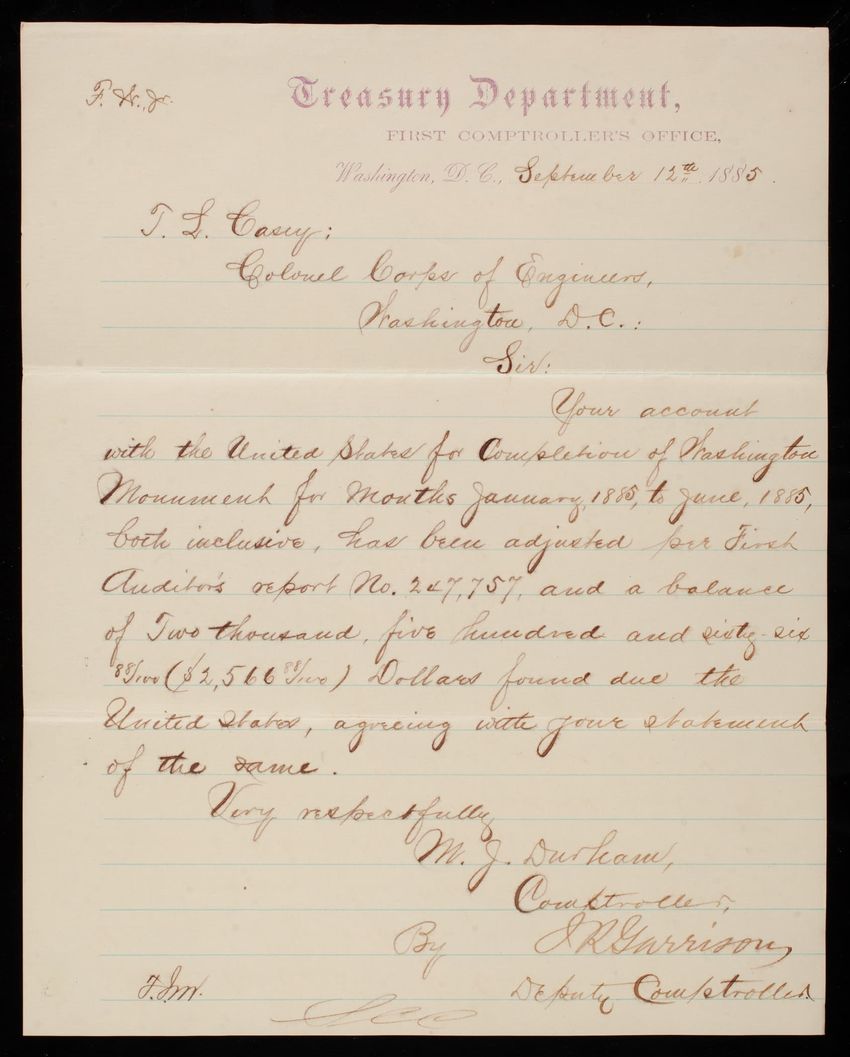 Treasury Department,
FIRST COMPTROLLER'S OFFICE,
Washington, D.C., September 12th 1885.
T. L. Casey:
Colonel Corps of Engineers,
Washington, D.C.:
Sir:
Your account
with the United States for Completion of Washington
Monument for Months January, 1885, to June, 1885,
both inclusive, has been adjusted per First
Auditor's report No. 247,757, and a balance
of Two thousand, five hundred and sixty-six
88/100 ($2,566 88/100) Dollars found due the
United States, agreeing with your statement
of the same.
Very respectfully
M. J. Durham,
Comptroller,
By J R Garrison,
Deputy Comptroller